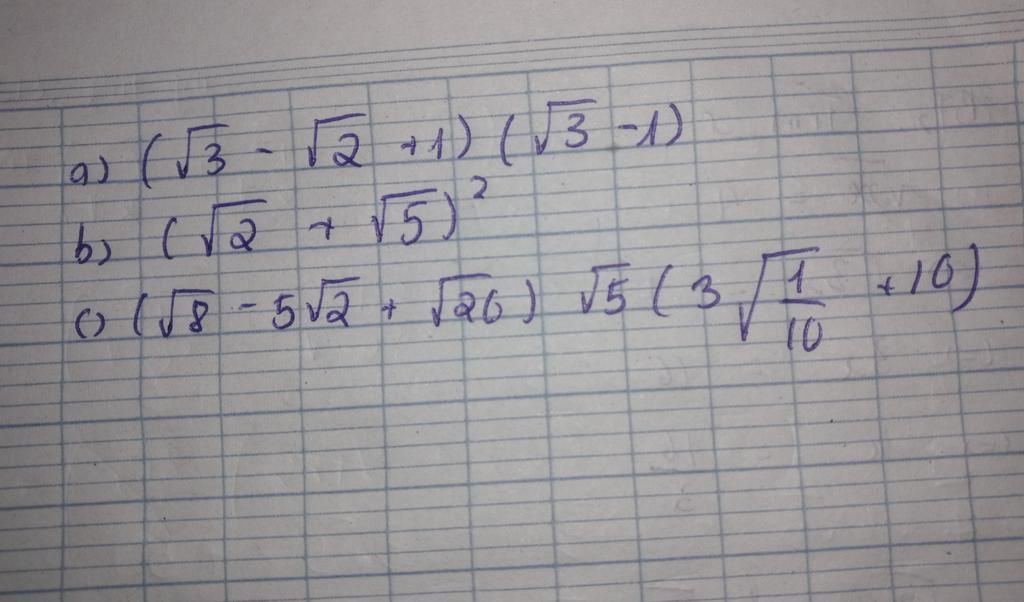 a) (√3 - √2 + 1) (√3 - 1)
b) (√2 + √5)²
c) (√8 - 5√2 + √20) √5 (3√(1/10) + 10)